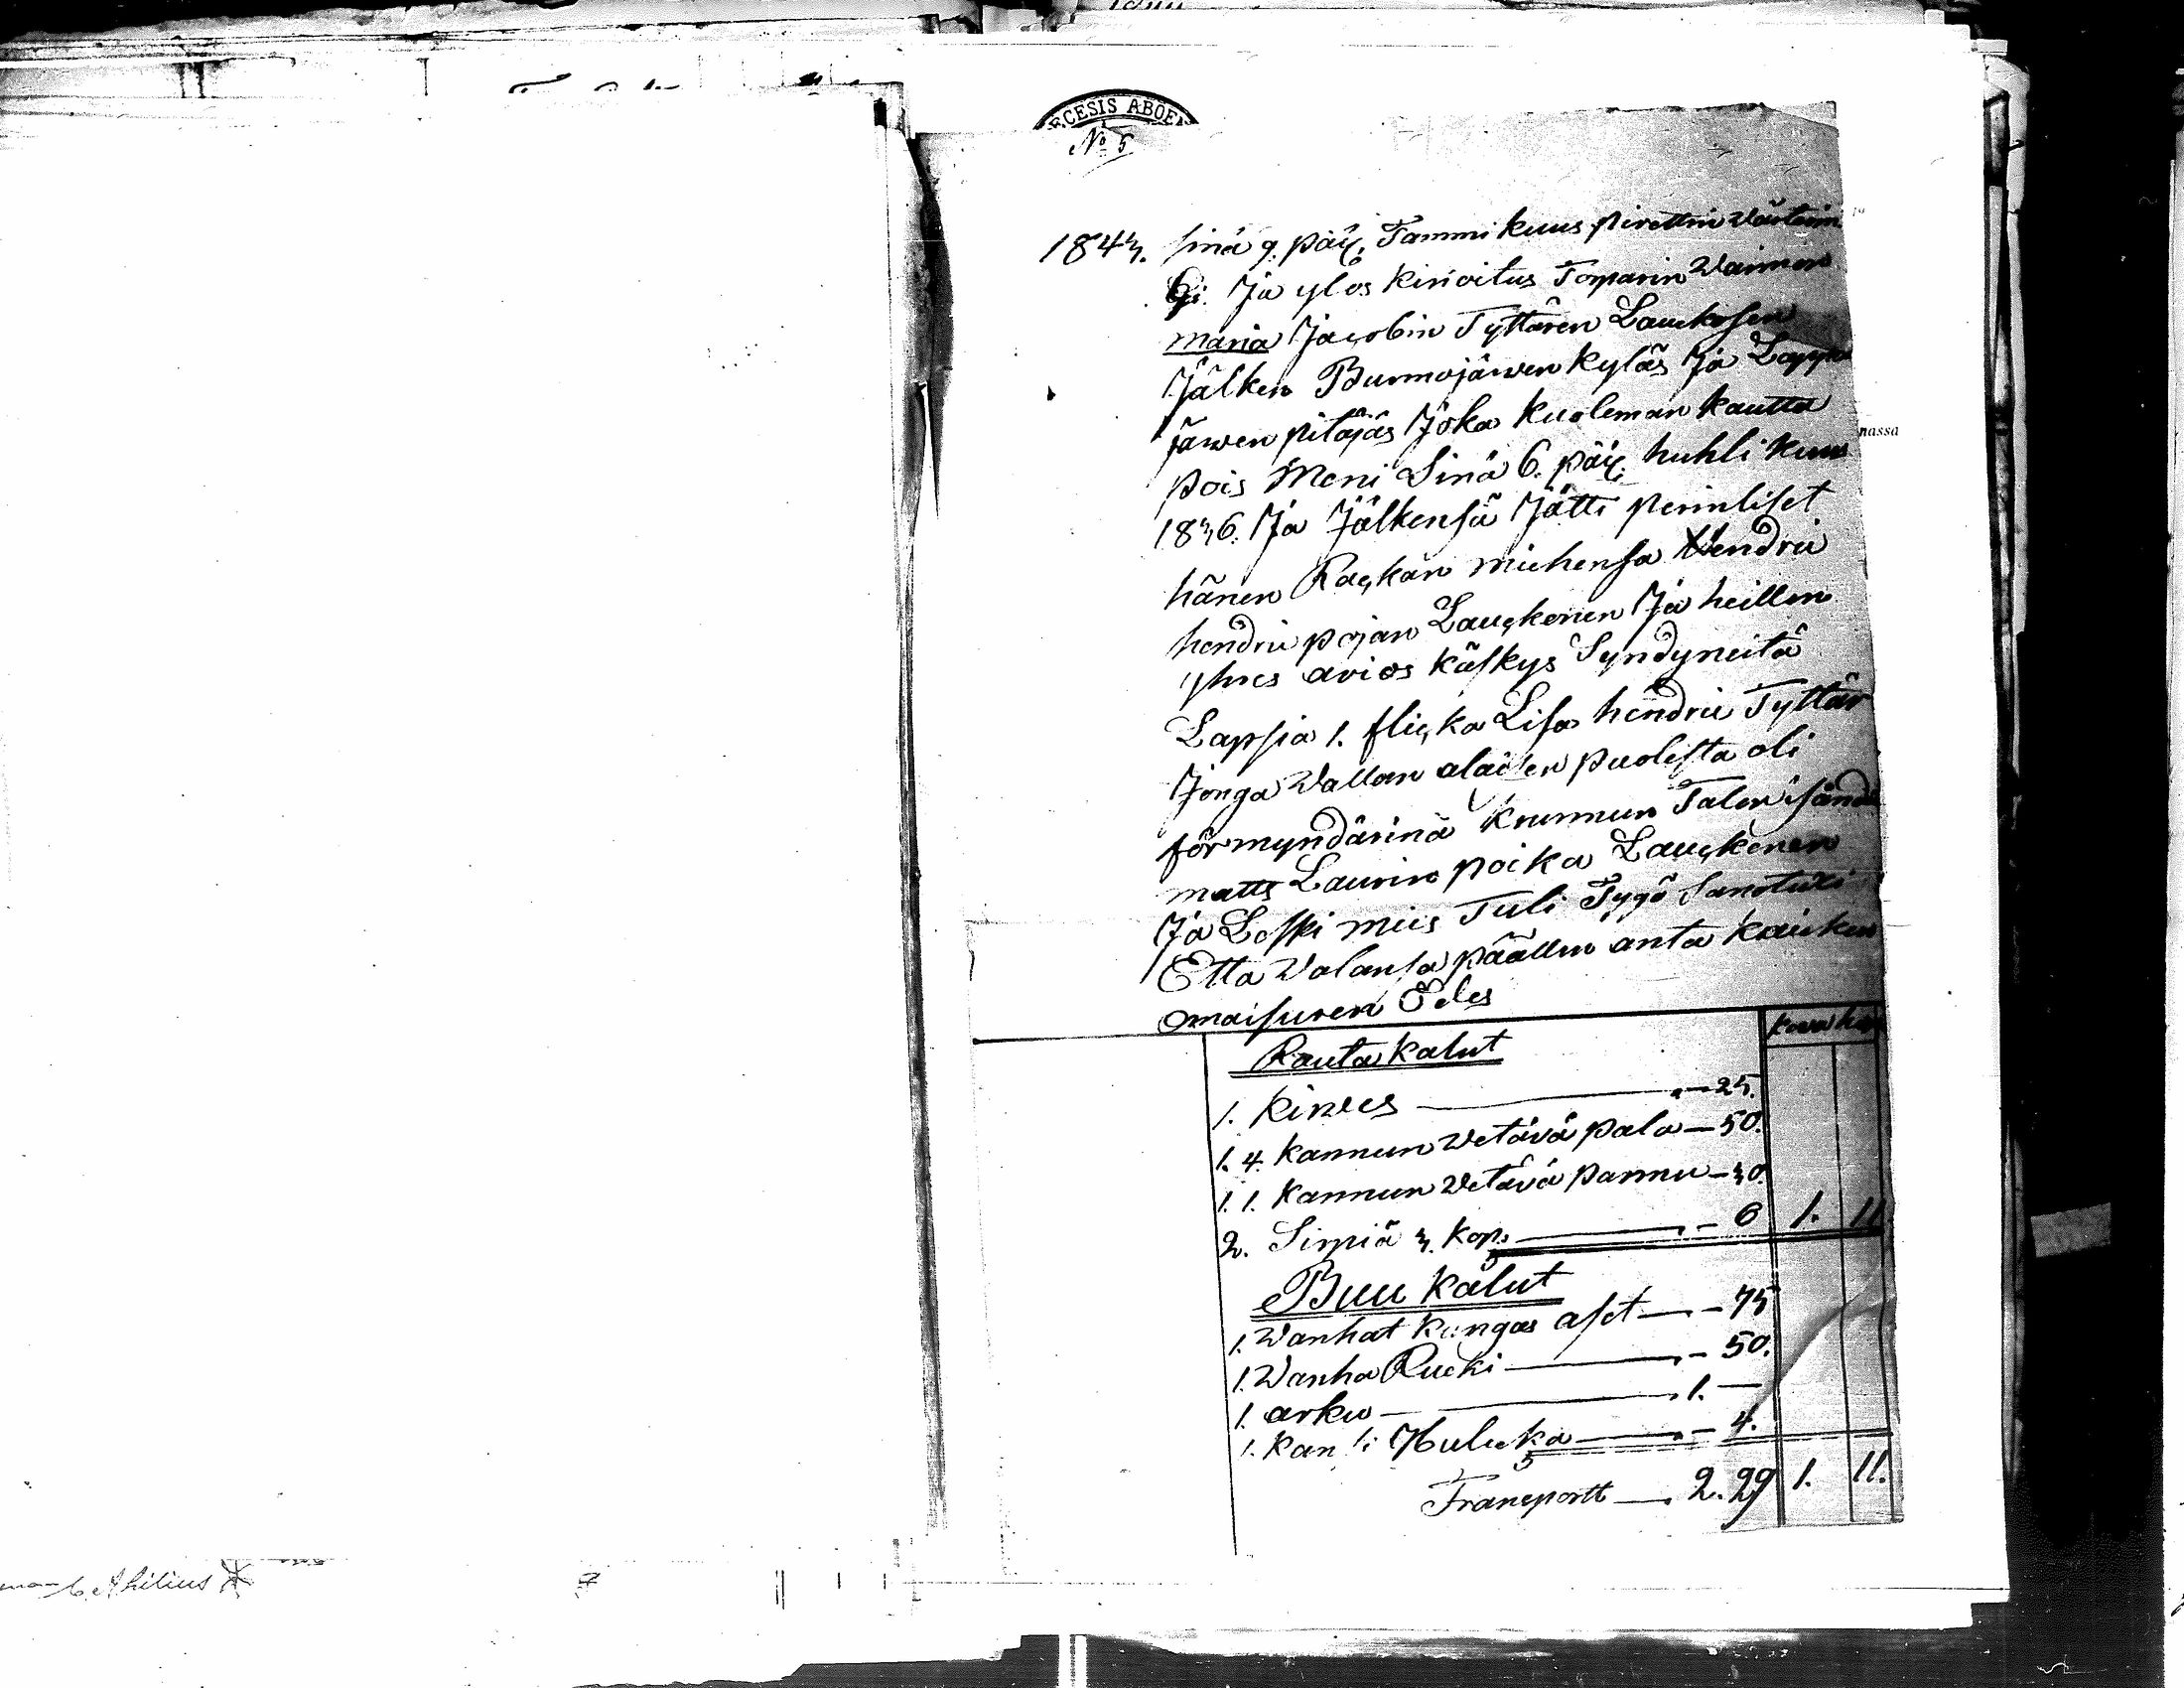 ECESIS ABOEN
No 5
1843. sinä 9. päiv. Tammi kuus pirettin
Ja ylös kirioitus Torparin Waimon
maria Jacobin Tyttären Lauckosen
Jälken Burmojärwen kyläs Ja Leppä
järwen pitäjäs Joka kuoleman kautta
pois Meni Sinä 6. päiv. huhti kuus
1836. Ja Jälkensä Jätti perinliset
hänen Rackan miehensa Hendrii
hendrii pojan Lauckonen Ja heillen
yhres avios käskys Syndyneitä
Lapsia 1. flicka Lisa hendrii Tyttär
Jonga Wallan alaisen puolesta oli
förmyndärinä krunnun Talon isändä
matts Laurin poika Lauckonen
Ja Leski mies Tuli Tygö Sanotuxi
Etta Walansa päällen anta kaicken
omaisuren Edes
Rauta kalut
1. Kirwes — 25.
1. 4. kannun wetävä pata — 50.
1. 1. kannun wetävä pannu — 30.
2. Sirpiä 3. kop. — 6 1. 11
Buu kalut
1. Wanhat kangas aset — 75
1. Wanha Rucki — 50.
1. arku — 1. —
1. — 4.
Transportt — 2. 29 1. 11.
nassa